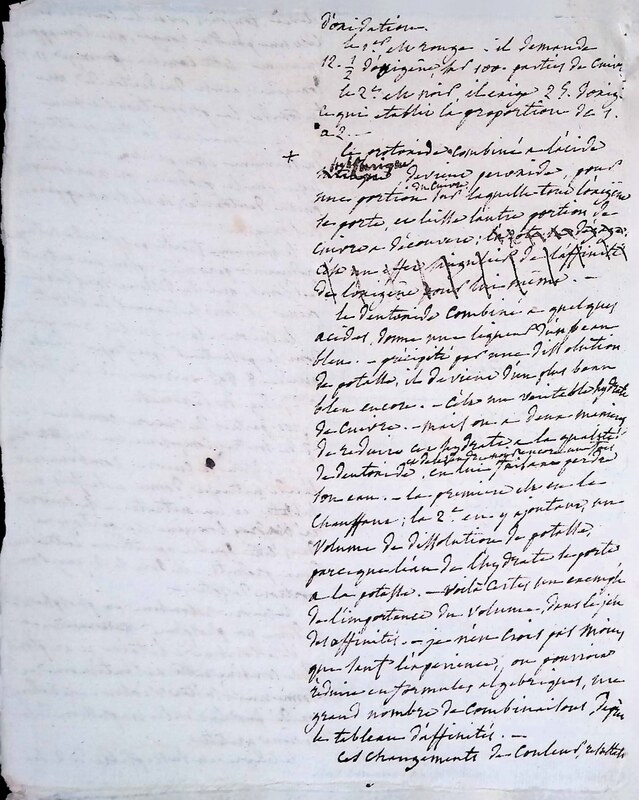 d'oxidation.
le 1er est rouge. il demande
12. 1/2 d'oxigène, sur 100. parties de cuivre
le 2.e est noir il exige 25. d'oxig.
ce qui etablit la proportion de 1.
a 2. —
+ le protoxide combiné a l'acide
sulfurique devient peroxide, pour
une portion du cuivre sur laquelle tout l'oxigène
se porte, et laisse l'autre portion de
cuivre a découvert;
c'est un effet singulier de l'affinité
de l'oxigène pour lui même. —
le deutoxide combiné a quelques
acides, donne une liqueur d'un beau
bleu. — précipité par une dissolution
de potasse, il devient d'un plus beau
bleu encore. — C'est un veritable hydrate
de cuivre. — mais on a deux manieres
de reduire cet hydrate a la qualité
de deutoxide, en lui faisant perdre
son eau. — la premiere est en le
chauffant; la 2.e en y ajoutant, un
volume de dissolution de potasse,
parceque l'eau de l'hydrate se porte
a la potasse. — Voilà certes un exemple
de l'importance du volume, dans le jeu
des affinités. — je n'en crois pas moins
que sauf l'expérience, on pourroit
réduire en formules algebriques, une
grand nombre de combinaisons d'après
le tableau d'affinités. —
Ces changements de couleur,